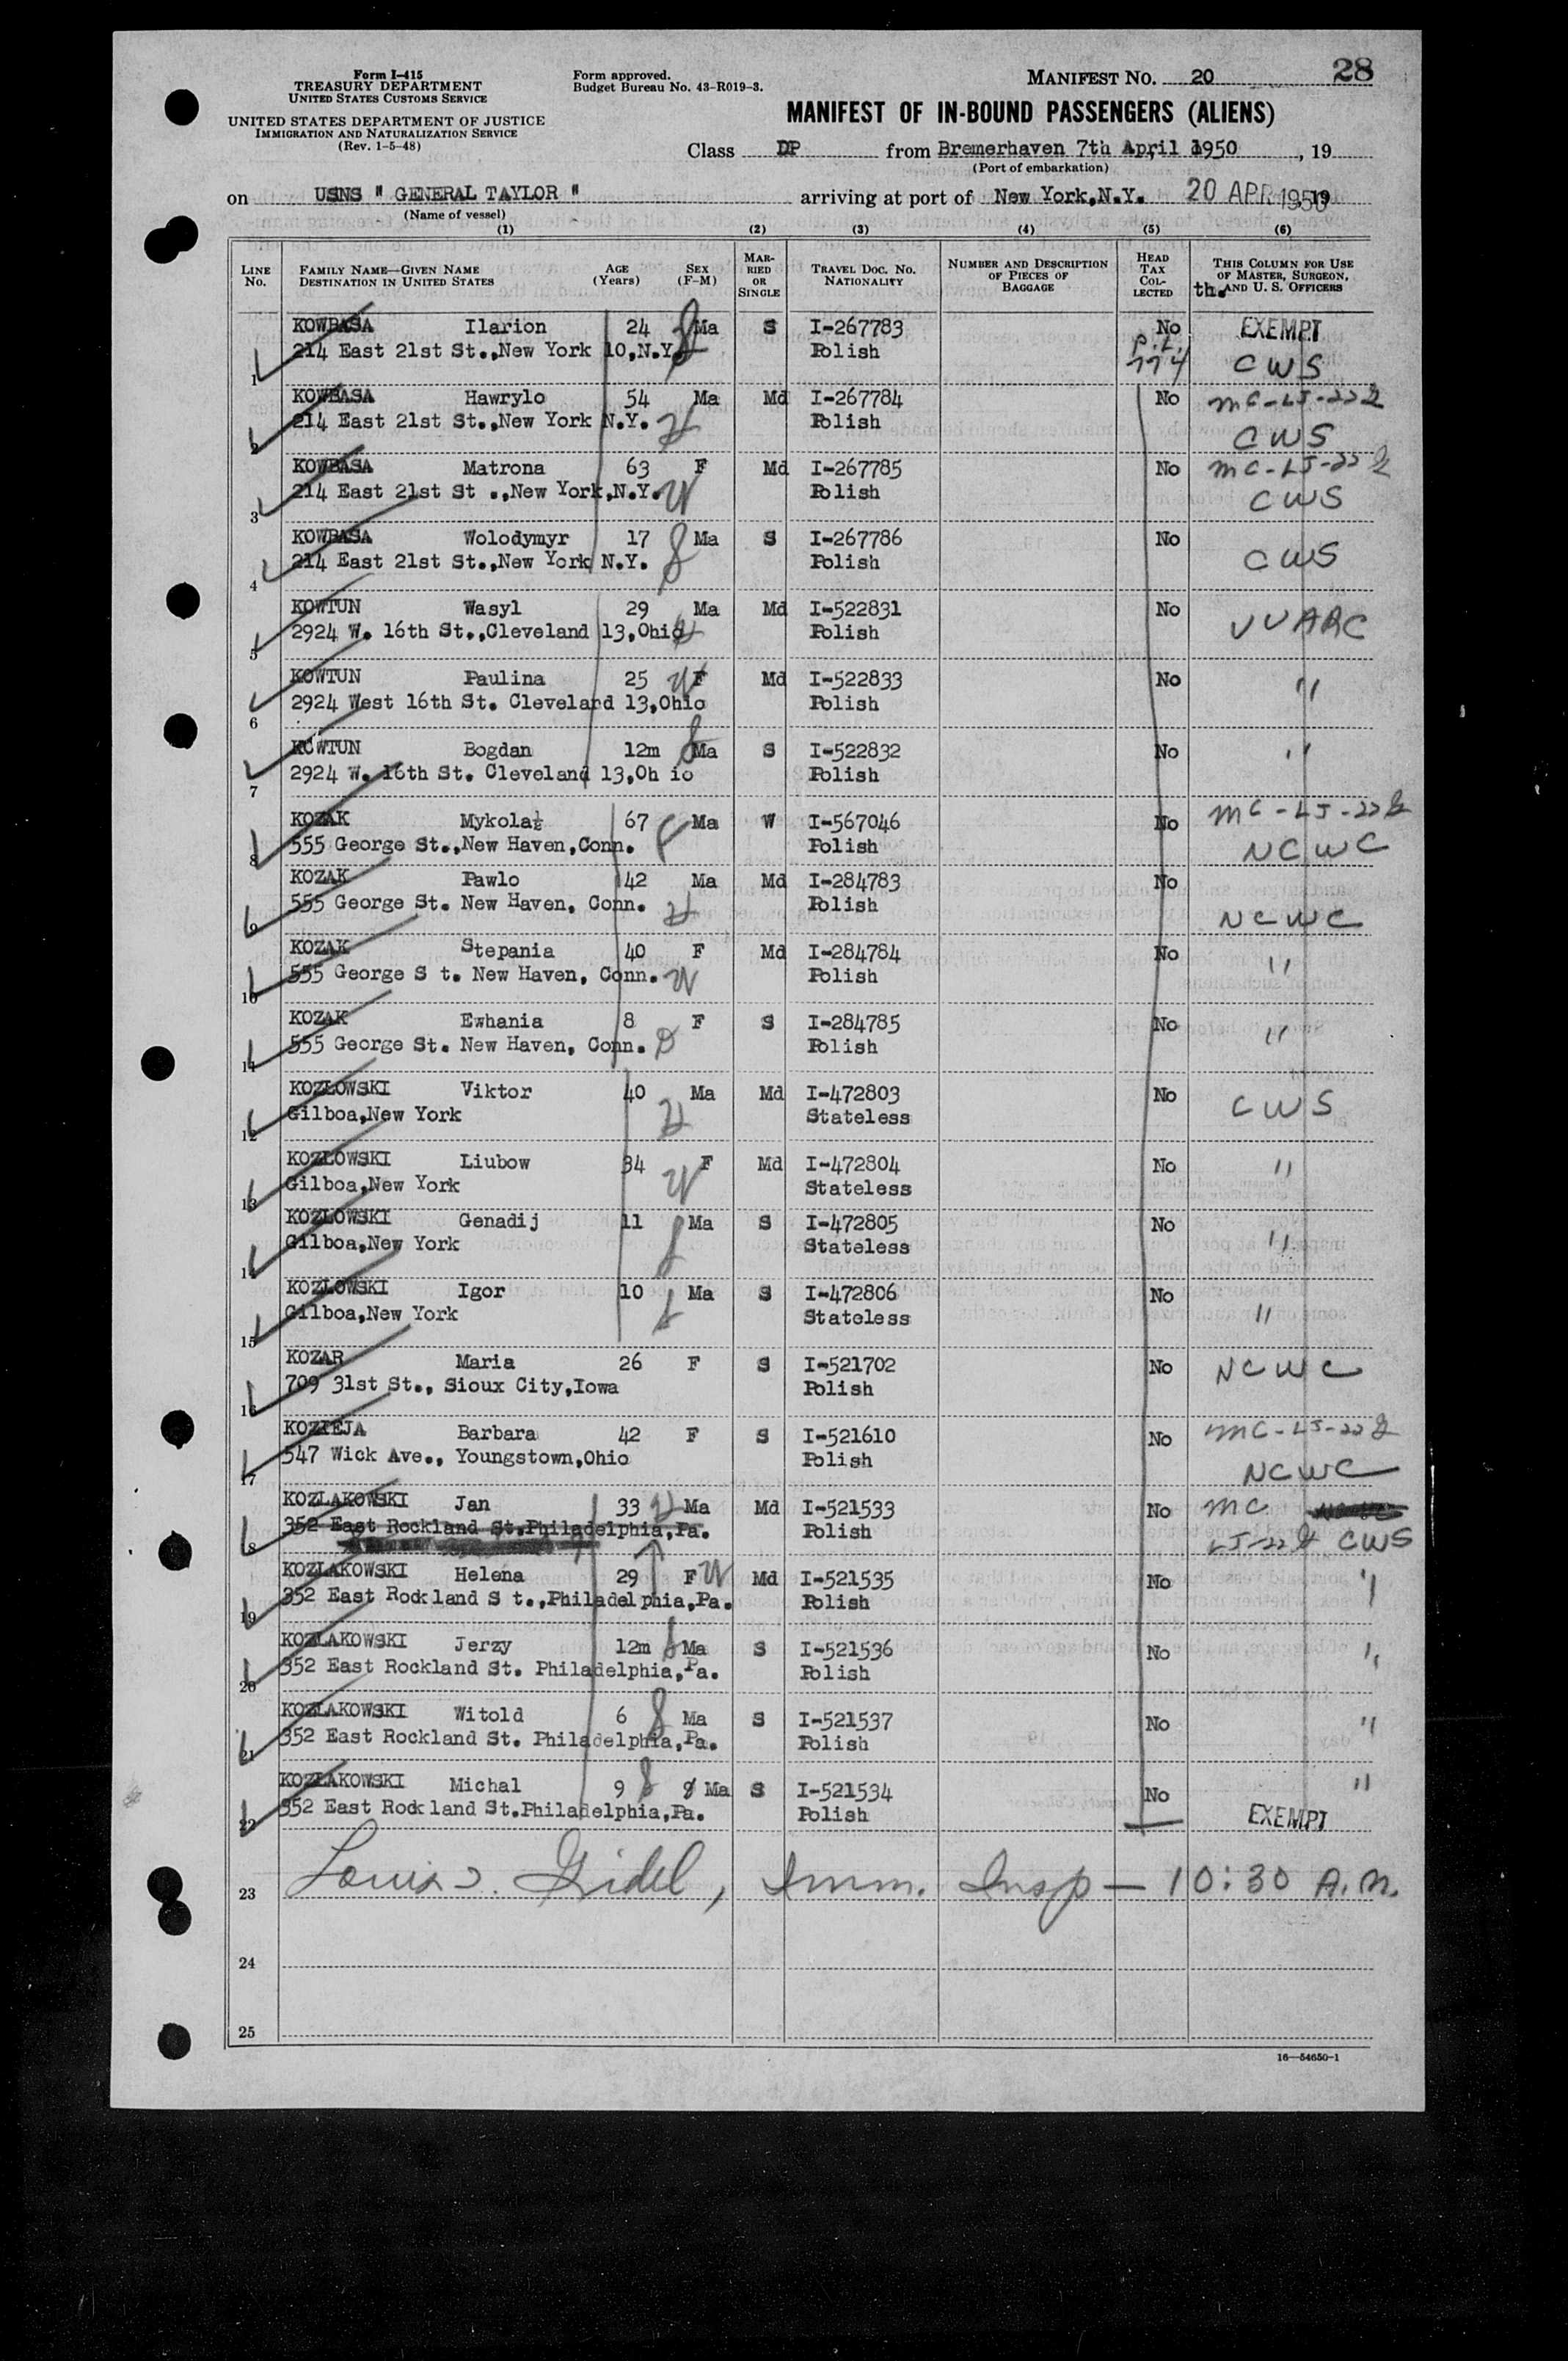 Form I-415
TREASURY DEPARTMENT
UNITED STATES CUSTOMS SERVICE
UNITED STATES DEPARTMENT OF JUSTICE
IMMIGRATION AND NATURALIZATION SERVICE
(Rev. 1-5-48)
Form approved.
Budget Bureau No. 43-R019-3.
MANIFEST NO. 20
28
MANIFEST OF IN-BOUND PASSENGERS (ALIENS)
Class DP from Bremerhaven 7th April 1950, 19
(Port of embarkation)
on USNS " GENERAL TAYLOR " arriving at port of New York,N.Y. 20 APR 1950 19
(Name of vessel)
(1) (2) (3) (4) (5) (6)
LINE No.
FAMILY NAME—GIVEN NAME DESTINATION IN UNITED STATES
AGE (Years)
SEX (F-M)
MARRIED OR SINGLE
TRAVEL DOC. NO. NATIONALITY
NUMBER AND DESCRIPTION OF PIECES OF BAGGAGE
HEAD TAX COLLECTED
THIS COLUMN FOR USE OF MASTER, SURGEON, AND U. S. OFFICERS
th.
KOWBASA Ilarion 24 Ma S I-267783 No EXEMPT
1 214 East 21st St.,New York 10,N.Y. Polish P.L. 774 CWS
KOWBASA Hawrylo 54 Ma Md I-267784 No MC-LJ-22
2 214 East 21st St.,New York N.Y. Polish CWS
KOWBASA Matrona 63 F Md I-267785 No MC-LJ-22
3 214 East 21st St .,New York,N.Y. Polish CWS
KOWBASA Wolodymyr 17 Ma S I-267786 No
4 214 East 21st St.,New York N.Y. Polish CWS
KOWTUN Wasyl 29 Ma Md I-522831 No
5 2924 W. 16th St.,Cleveland 13,Ohio Polish UUARC
KOWTUN Paulina 25 F Md I-522833 No
6 2924 West 16th St. Cleveland 13,Ohio Polish "
KOWTUN Bogdan 12m Ma S I-522832 No "
7 2924 W. 16th St. Cleveland 13,Oh io Polish
KOZAK Mykola 67 Ma W I-567046 No MC-LJ-22
8 555 George St.,New Haven,Conn. Polish NCWC
KOZAK Pawlo 42 Ma Md I-284783 No
9 555 George St. New Haven, Conn. Polish NCWC
KOZAK Stepania 40 F Md I-284784 No
10 555 George S t. New Haven, Conn. Polish "
KOZAK Ewhania 8 F S I-284785 No
11 555 George St. New Haven, Conn. Polish "
KOZLOWSKI Viktor 40 Ma Md I-472803 No CWS
12 Gilboa,New York Stateless
KOZLOWSKI Liubow 34 F Md I-472804 No "
13 Gilboa,New York Stateless
KOZLOWSKI Genadij 11 Ma S I-472805 No
14 Gilboa,New York Stateless "
KOZLOWSKI Igor 10 Ma S I-472806 No
15 Gilboa,New York Stateless "
KOZAR Maria 26 F S I-521702 No NCWC
16 709 31st St., Sioux City,Iowa Polish
KOZIEJA Barbara 42 F S I-521610 No MC-LJ-22
17 547 Wick Ave., Youngstown,Ohio Polish NCWC
KOZLAKOWSKI Jan 33 Ma Md I-521533 No MC
18 352 East Rockland St.Philadelphia,Pa. Polish LJ-22 CWS
KOZLAKOWSKI Helena 29 F Md I-521535 No "
19 352 East Rockland S t.,Philadelphia,Pa. Polish
KOZLAKOWSKI Jerzy 12m Ma S I-521536 No "
20 352 East Rockland St. Philadelphia,Pa. Polish
KOZLAKOWSKI Witold 6 Ma S I-521537 No "
21 352 East Rockland St. Philadelphia,Pa. Polish
KOZLAKOWSKI Michal 9 Ma S I-521534 No "
22 352 East Rockland St.Philadelphia,Pa. Polish EXEMPT
23 Louis J. Gidel, Imm. Insp — 10:30 A.M.
24
25
16—54650-1